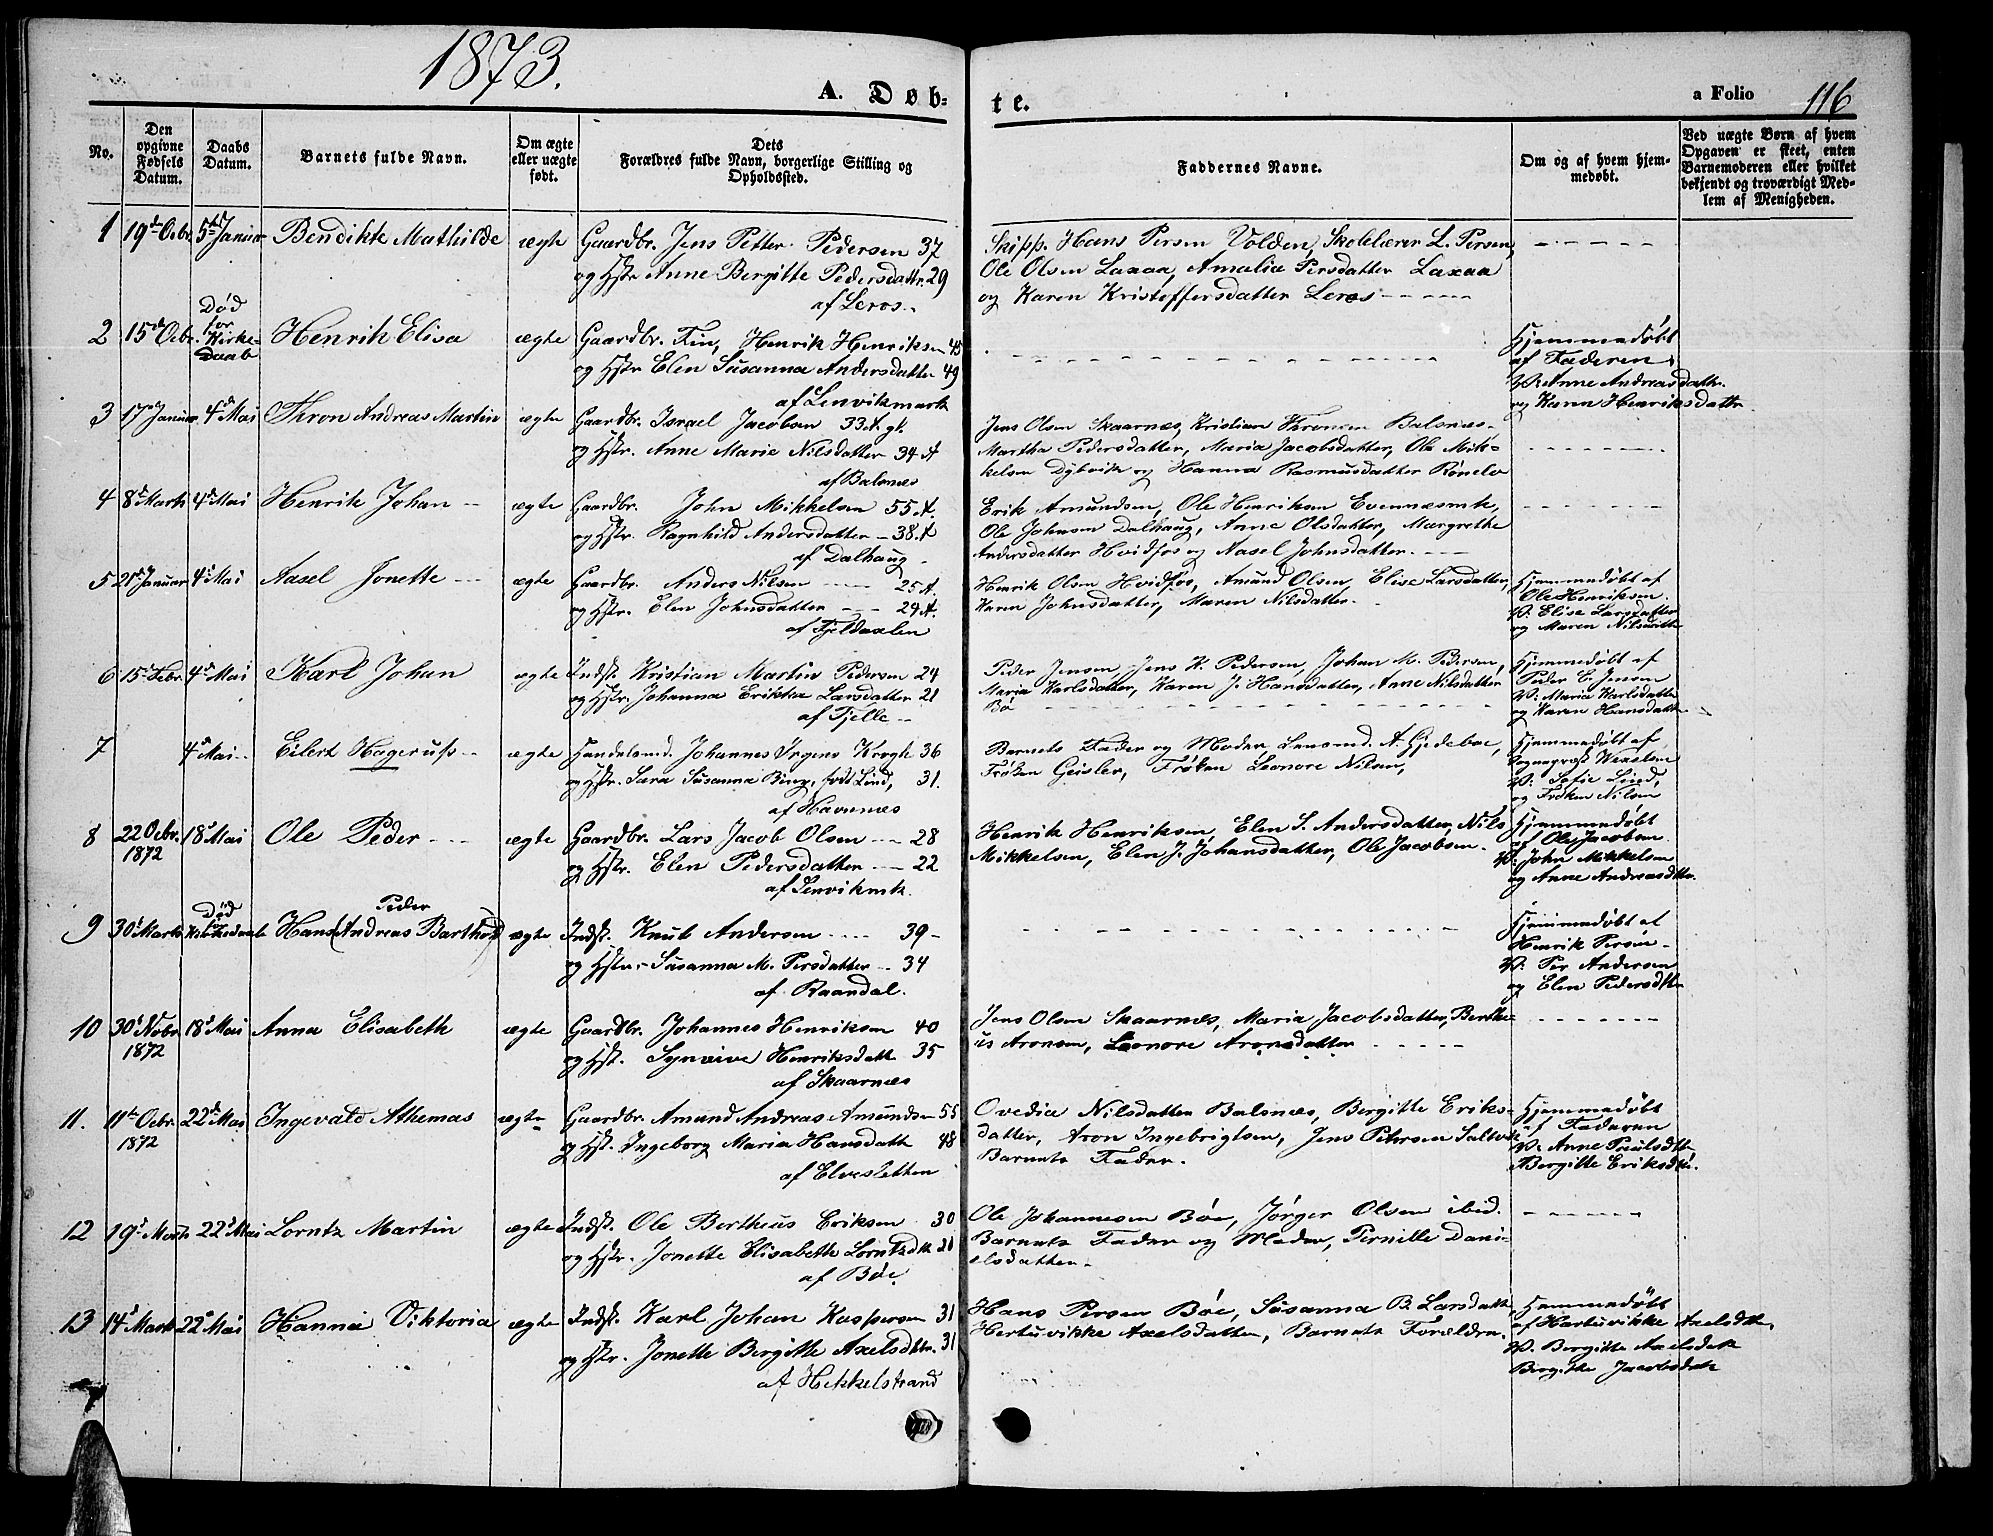 1873.
A. Døb-
te.
a Folio 116
No.
Den opgivne Fødsels Datum.
Daabs Datum.
Barnets fulde Navn.
Om ægte eller uægte født.
Dets
Forældres fulde Navn, borgerlige Stilling og
Opholdssted.
Faddernes Navne.
Om og af hvem hjem-
medøbt.
Ved uægte Børn af hvem
Opgaven er skeet, enten
Barnemoderen eller hvilket
bekjendt og troværdigt Med-
lem af Menigheden.
1 19de Octbr. 5te Januar Bendikte Mathilde ægte Gaardbr. Jens Petter Pedersen 37
og Hstr Anne Bergitte Pedersdattr. 29
af Leros.
Skipp. Hans Persen Volden, Skolelærer L. Persen,
Ole Olsen Laxaa, Amalia Persdatter Laxaa
og Karen Kristoffersdatter Leros
2 15de Octbr. Død
for
Kirke-
Daab
Henrik Elisa ægte Gaardbr. Fin, Henrik Henriksen 45
og Hstr Elen Susanna Andersdatter 49
af Lenvikmark
Hjemmedøbt
af Faderen
V: Anne Andreasdattr.
og Karen Henriksdattr
3 17de Januar 4de Mai Thron Andreas Martin ægte Gaardbr. Israel Jacobsen 33 A. gl.
og Hstr. Anne Marie Nilsdatter 34 A
af Balsnes
Jens Olsen Skaarnæs, Kristian Thronsen Balsnæs
Martha Pedersdatter, Maria Jacobsdatter, Ole Mik-
kelsen Dybvik og Hanna Rasmusdatter Rönelv
4 8de Marts 4de Mai Henrik Johan ægte Gaardbr. John Mikkelsen 55 A.
og Hstr. Ragnhild Andersdatter 38. A
af Dalhaug
Erik Amundsen, Ole Henriksen Evennæsmk,
Ole Johnsen Dalhaug, Anne Olsdatter, Margrethe
Andersdatter Hvidfos og Aasel Johnsdatter.
5 21de Januar 4de Mai Aasel Jonette ægte Gaardbr. Anders Nilsen 25 A.
og Hstr. Elen Johnsdatter 29 A.
af Fjeldaxlen
Henrik Olsen Hvidfos, Amund Olsen, Elise Larsdatter,
Karen Johnsdatter, Maren Nilsdatter.
Hjemmedøbt af
Ole Henriksen.
V: Elise Larsdatter
og Maren Nilsdttr
6 15de Febr. 4de Mai Karl Johan ægte Indst. Kristian Martin Pedersen 24
og Hstr. Johanna Erikka Larsdatter 21
af Fjelle
Peder Jensen, Jens K. Pedersen, Johan M. Pedersen,
Maria Karlsdatter, Karen J. Hansdatter, Anne Nilsdatter
Bö
Hjemmedøbt af
Peder E. Jensen
V: Maria Karlsdatter
og Karen Hansdattr
7 4de Mai Eilert Hagerup ægte Handelsmd. Johannes Irgens Krogh 36
og Hstr. Sara Susanna Bing, født Lind, 31.
af Havnnæs
Barnets Fader og Moder, Lensmd. A. Gjedeboe,
Frøken Geisler, Frøken Leonore Nilsen,
Hjemmedøbt af
Sogneprest Wexelsen
V: Sofie Lind,
og Frøken Nilsen
8 22 Octbr.
1872
18de Mai Ole Peder ægte Gaardbr. Lars Jacob Olsen 28
og Hstr. Elen Pedersdatter 22
af Lenvikmk.
Henrik Henriksen, Elen S. Andersdatter, Nils
Mikkelsen, Elen J. Johansdatter, Ole Jacobsen.
Hjemmedøbt
af Ole Jacobsen.
V: John Mikkelsen
og Anne Andreasdttr.
9 30de Marts Død
for
Kirkedaab
Peder
Hans (Andreas Barthold) ægte Indst. Knut Andersen 39
og Hstr. Susanna M. Persdatter 34
af Raandal.
Hjemmedøbt af
Henrik Persen
V: Per Andersen
og Elen Pedersdttr
10 30de Novbr.
1872
18de Mai Anna Elisabeth ægte Gaardbr. Johannes Henriksen 40
og Hst. Synnive Henriksdatt 35
af Skaarnæs
Jens Olsen Skaarnæs, Maria Jacobsdatter, Berthe-
us Aronsen, Leonore Aronsdatter
11. 11te Octbr.
1872
22de Mai Ingevald Athemas ægte Gaardbr. Amund Andreas Amundsen 55
og Hst. Ingeborg Maria Hansdatt 48
af Elvesletten
Ovedia Nilsdatter Balsnæs, Bergitte Eriks-
datter, Aron Ingebrigtsen, Jens Petersen Saltvik
Barnets Fader.
Hjemmedøbt
af Faderen
V: Anne Paulsdttr
Bergitte Eriksdtr.
12 19de Marts 22de Mai Lorntz Martin ægte Indst. Ole Bertheus Eriksen 30
og Hstr. Jonette Elisabeth Lorntzdtr 21
af Böe
Ole Johannesen Böe, Jörger Olsen ibid.
Barnets Fader og Moder, Pernille Dani-
elsdatter
13 14de Marts 22de Mai Hanna Viktoria ægte Indst. Karl Johan Kaspersen 31
og Hstr. Jonette Bergitte Axelsdttr. 31
af Hekkelstrand
Hans Persen Böe, Susanna B. Larsdatt,
Hertuvikke Axelsdatter, Barnets Forældre.
Hemmedøbt
af Hartuvikke Axelsdttr,
V. Bergitte Axelsdatt
Bergithe Jacobsdatt